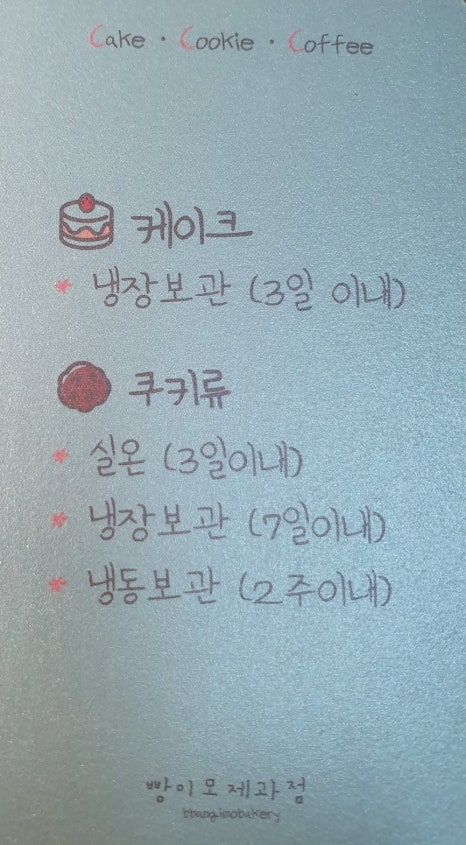 Cake · Cookie · Coffee
케이크
* 냉장보관 (3일 이내)
쿠키류
* 실온 (3일이내)
* 냉장보관 (7일이내)
* 냉동보관 (2주이내)
빵이모제과점
bbangimobakery